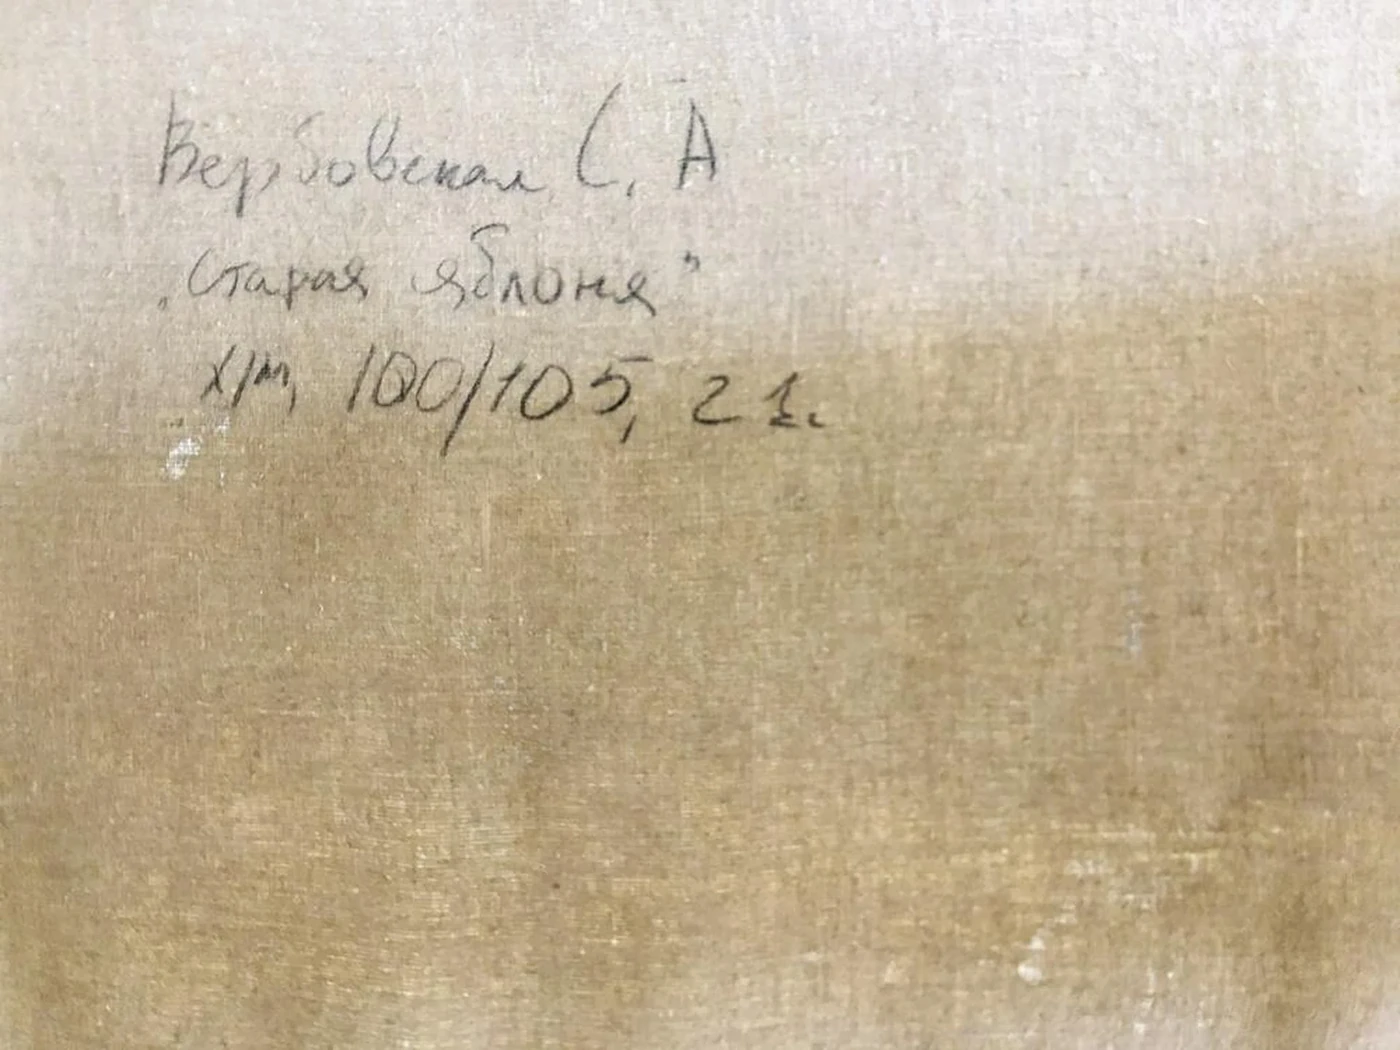 Вербовская С. А
„Старая яблоня"
х/м, 100/105, 21.